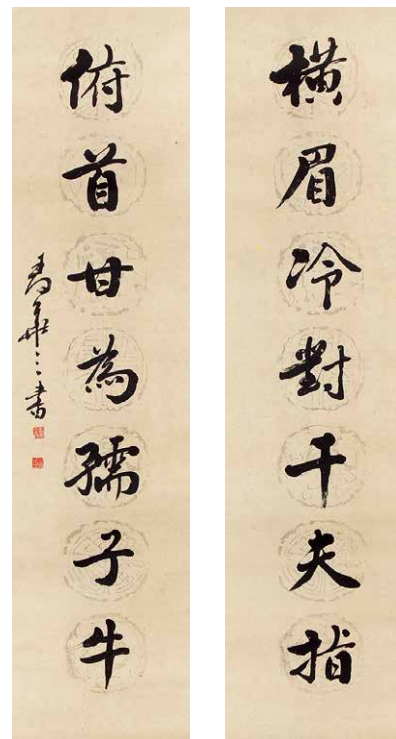 橫眉冷對千夫指
俯首甘為孺子牛
書